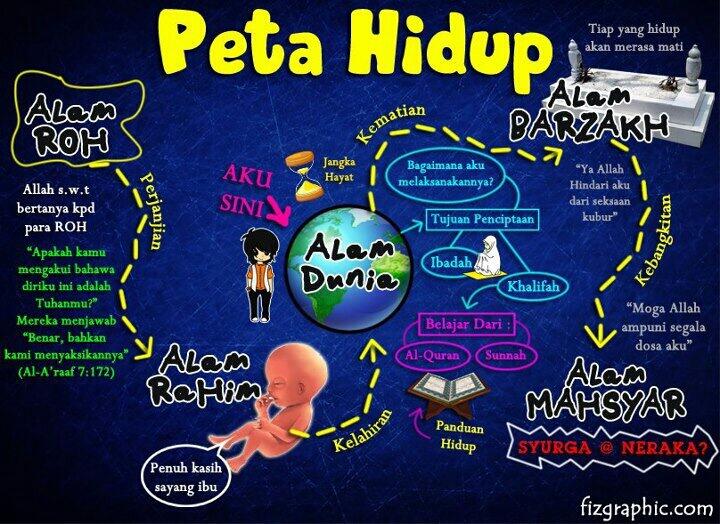 Peta Hidup
Tiap yang hidup
akan merasa mati
ALam
ROH
Allah s.w.t
bertanya kpd
para ROH
"Apakah kamu
mengakui bahawa
diriku ini adalah
Tuhanmu?"
Mereka menjawab
"Benar, bahkan
kami menyaksikannya"
(Al-A'raaf 7:172)
Perjanjian
ALam
RaHim
Penuh kasih
sayang ibu
Kelahiran
AKU
SINI
Jangka
Hayat
ALam
Dunia
Kematian
Bagaimana aku
melaksanakannya?
Tujuan Penciptaan
Ibadah
Khalifah
Belajar Dari :
Al-Quran
Sunnah
Panduan
Hidup
ALam
BARZAKH
"Ya Allah
Hindari aku
dari seksaan
kubur"
Kebangkitan
"Moga Allah
ampuni segala
dosa aku"
ALam
MAHSYAR
SYURGA @ NERAKA?
fizgraphic.com